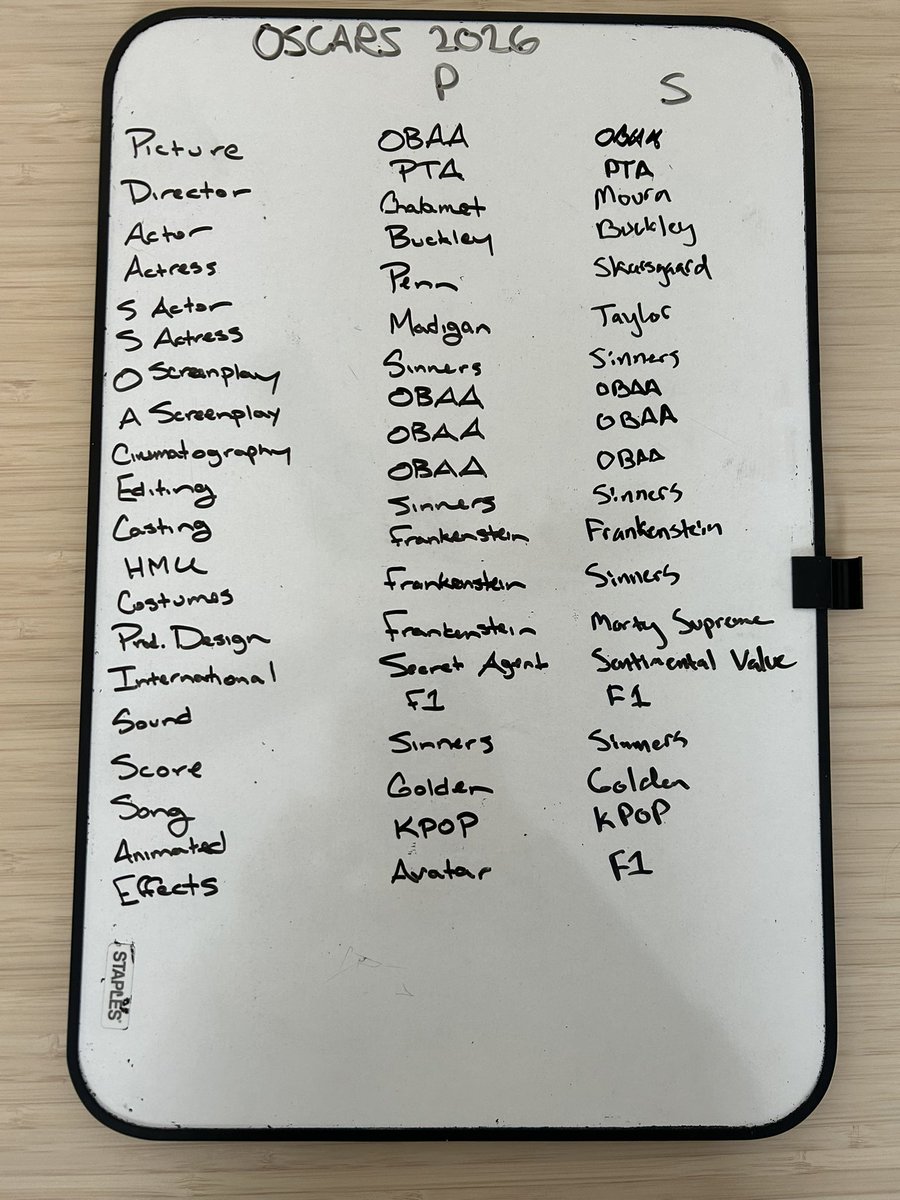 OSCARS 2026
P S
Picture OBAA OBAA
Director PTA PTA
Actor Chalamet Moura
Actress Buckley Buckley
S Actor Penn Skarsgaard
S Actress Madigan Taylor
O Screenplay Sinners Sinners
A Screenplay OBAA OBAA
Cinematography OBAA OBAA
Editing OBAA OBAA
Casting Sinners Sinners
HMU Frankenstein Frankenstein
Costumes Frankenstein Sinners
Prod. Design Frankenstein Marty Supreme
International Secret Agent Sentimental Value
Sound F1 F1
Score Sinners Sinners
Song Golden Golden
Animated KPOP KPOP
Effects Avatar F1
STAPLES